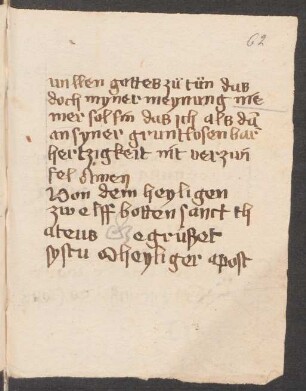 62
willen gottes zü tün das
doch myner meynung nie
mer sol sin das ich als dañ
an syner gruntlosen bar
hertzigkeit nit verzwi
fel Amen
Von dem heyligen
zwelff botten sanct th
ateus Gegrüßet
systu O heyliger apost